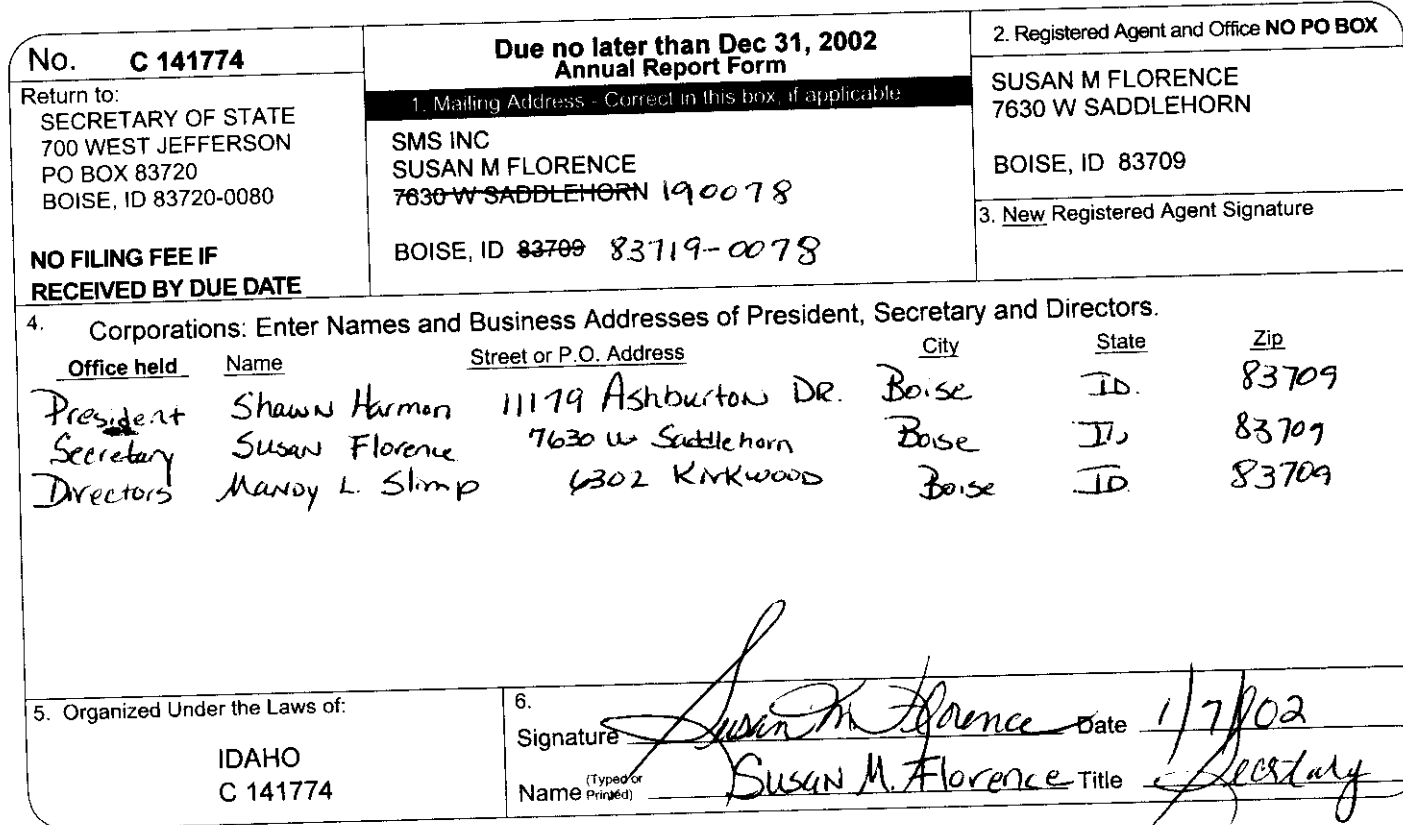 No. C 141774
Return to:
SECRETARY OF STATE
700 WEST JEFFERSON
PO BOX 83720
BOISE, ID 83720-0080
NO FILING FEE IF
RECEIVED BY DUE DATE
Due no later than Dec 31, 2002
Annual Report Form
1. Mailing Address - Correct in this box, if applicable
SMS INC
SUSAN M FLORENCE
7630 W SADDLEHORN 190078
BOISE, ID 83709 83719-0078
2. Registered Agent and Office NO PO BOX
SUSAN M FLORENCE
7630 W SADDLEHORN
BOISE, ID 83709
3. New Registered Agent Signature
4. Corporations: Enter Names and Business Addresses of President, Secretary and Directors.
Office held Name Street or P.O. Address City State Zip
President Shawn Harmon 11179 Ashburton DR. Boise ID. 83709
Secretary Susan Florence 7630 W Saddlehorn Boise ID 83709
Directors Mandy L. Slimp 6302 Kirkwood Boise ID 83709
5. Organized Under the Laws of:
IDAHO
C 141774
6.
Signature Susan M. Florence Date 1/7/02
Name (Typed or Printed) Susan M. Florence Title Secretary